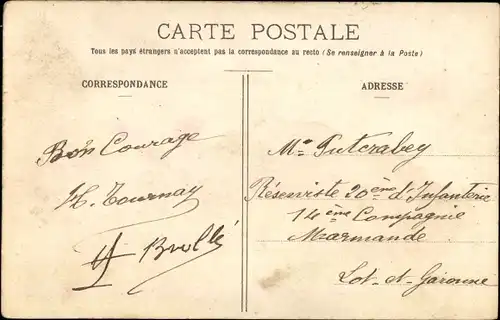 CARTE POSTALE
Tous les pays étrangers n'acceptent pas la correspondance au recto (Se renseigner à la Poste)
CORRESPONDANCE
ADRESSE
Bon Courage
H. Tournay
Mr
Réserviste 20ème d'Infanterie
14eme Compagnie
Marmande
Lot-et-Garonne